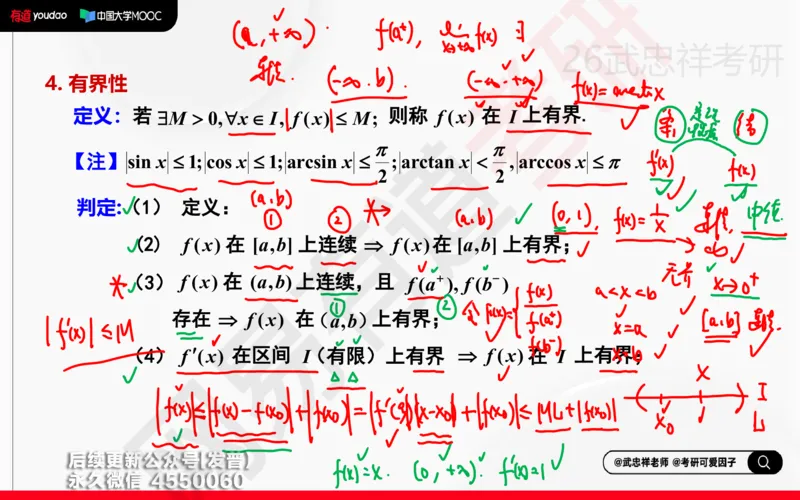 有道 youdao 中国大学MOOC
(a, +∞). f(a⁺), lim x→+∞ f(x) ∃
26武忠祥考研
(-∞. b). (-∞. +∞) f(x)= arctan x
4. 有界性
定义：若 ∃M > 0, ∀x ∈ I, |f(x)| ≤ M; 则称 f(x) 在 I 上有界.
【注】|sin x| ≤ 1; |cos x| ≤ 1; |arcsin x| ≤ π/2; |arctan x| < π/2, |arccos x| ≤ π
f'(x) f(x)
判定: (1) 定义： (a.b) ① ② (a.b) (0, 1). f(x)= 1/x
(2) f(x) 在 [a,b] 上连续 ⇒ f(x) 在 [a,b] 上有界;
无界 x→0⁺
(3) f(x) 在 (a,b) 上连续，且 f(a⁺), f(b⁻)
f(x) a<x<b
存在 ⇒ f(x) 在 (a,b) 上有界; ① ②
f(a⁺) x=a [a.b]
f(b⁻) x=b
|f'(x)| ≤ M
(4) f′(x) 在区间 I (有限) 上有界 ⇒ f(x) 在 I 上有界;
|f(x)| ≤ |f(x) - f(x₀)| + |f(x₀)| = |f'(ξ)||x-x₀| + |f(x₀)| ≤ ML + |f(x₀)|
x I
x₀ L
f(x)=x. (0, +∞). f'(x)=1
后续更新公众号[发普]
永久微信 4550060
@武忠祥老师 @考研可爱因子